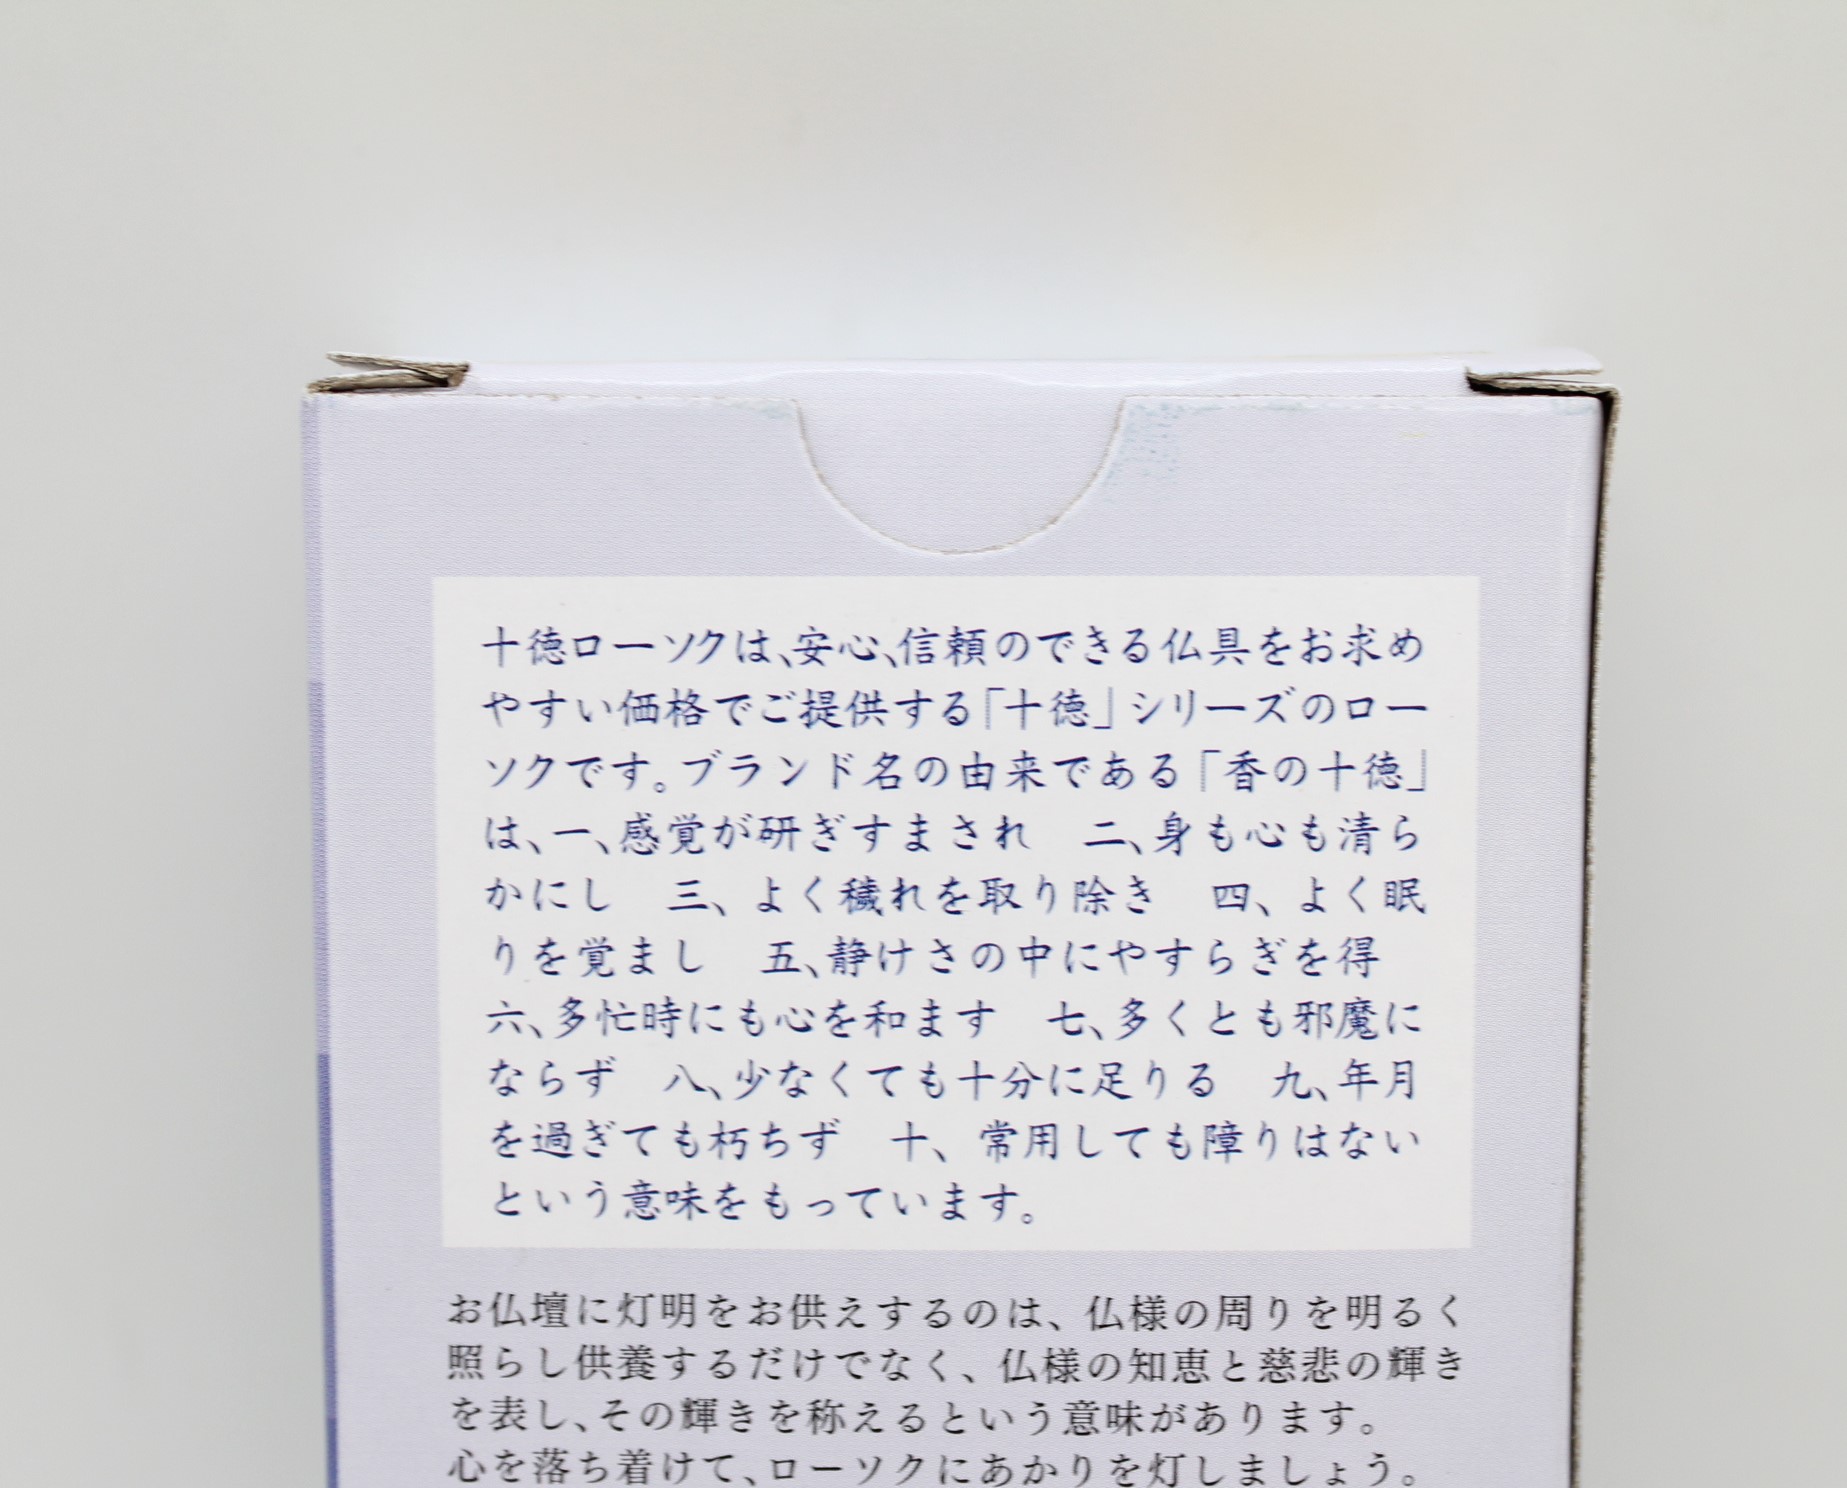 十徳ローソクは、安心、信頼のできる仏具をお求め
やすい価格でご提供する「十徳」シリーズのロー
ソクです。ブランド名の由来である「香の十徳」
は、一、感覚が研ぎすまされ　二、身も心も清ら
かにし　三、よく穢れを取り除き　四、よく眠
りを覚まし　五、静けさの中にやすらぎを得
六、多忙時にも心を和ます　七、多くとも邪魔に
ならず　八、少なくても十分に足りる　九、年月
を過ぎても朽ちず　十、常用しても障りはない
という意味をもっています。
お仏壇に灯明をお供えするのは、仏様の周りを明るく
照らし供養するだけでなく、仏様の知恵と慈悲の輝き
を表し、その輝きを称えるという意味があります。
心を落ち着けて、ローソクにあかりを灯しましょう。